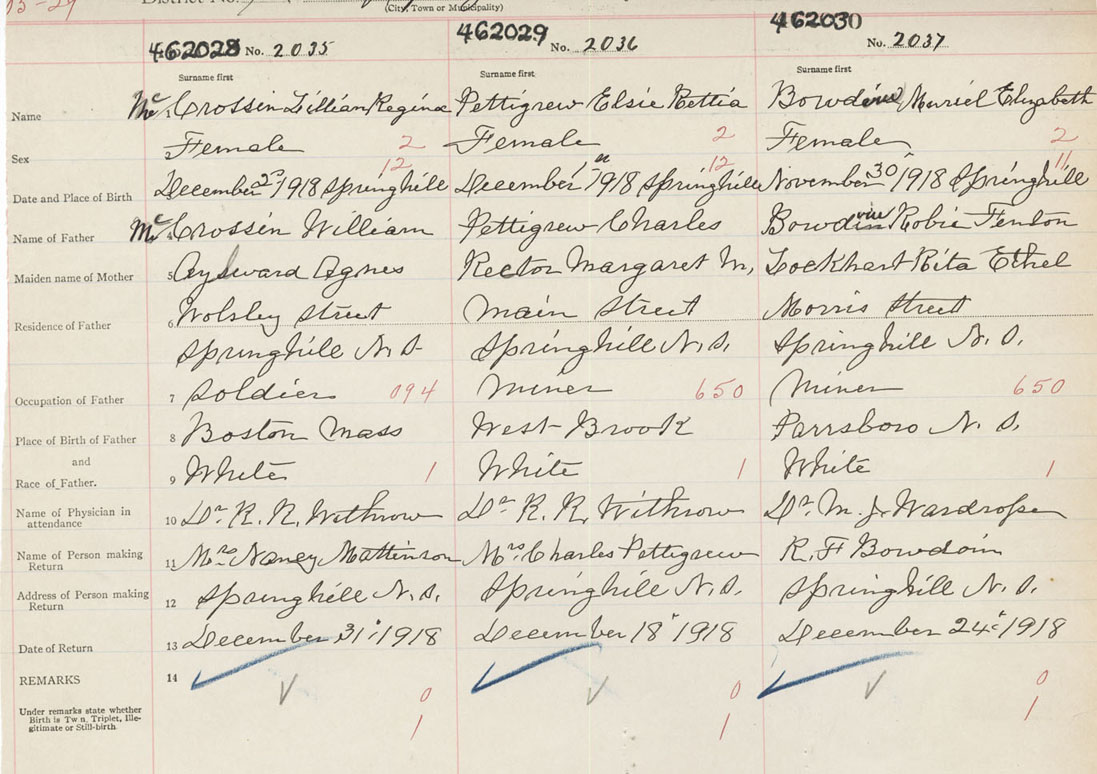 15-29 District No.
(City, Town or Municipality)
462028 No. 2035 462029 No. 2036 462030 No. 2037
Surname first Surname first Surname first
Name Mc 1 Crossin Lillian Regina Pettigrew Elsie Rettia Bowdin Muriel Elizabeth
Sex 2 Female 2 Female 2 Female 2
12 12 11
Date and Place of Birth 3 December 2nd 1918 Springhill December 1st 1918 Springhill November 30" 1918 Springhill
Name of Father Mc 4 Crossin William Pettigrew Charles Bowdin Robie Fenton
Maiden name of Mother 5 Aylward Agnes Rector Margaret M, Lockhart Rita Ethel
Residence of Father 6 Wolsley Street Main Street Morris Street
Springhill N.S. Springhill N.S. Springhill N.S.
Occupation of Father 7 Soldier 094 Miner 650 Miner 650
Place of Birth of Father 8 Boston Mass West Brook Parrsboro N.S.
and
Race of Father. 9 White 1 White 1 White 1
Name of Physician in
attendance 10 Dr. R. R. Withrow Dr. R. R. Withrow Dr. M. J. Wardrope
Name of Person making
Return 11 Mrs Nancy Mattinson Mrs Charles Pettigrew R. F Bowdoin
Address of Person making
Return 12 Springhill N.S. Springhill N.S. Springhill N.S.
Date of Return 13 December 31" 1918 December 18" 1918 December 24" 1918
REMARKS 14
0 0 0
Under remarks state whether
Birth is Twn, Triplet, Ille-
gitimate or Still-birth.
1 1 1